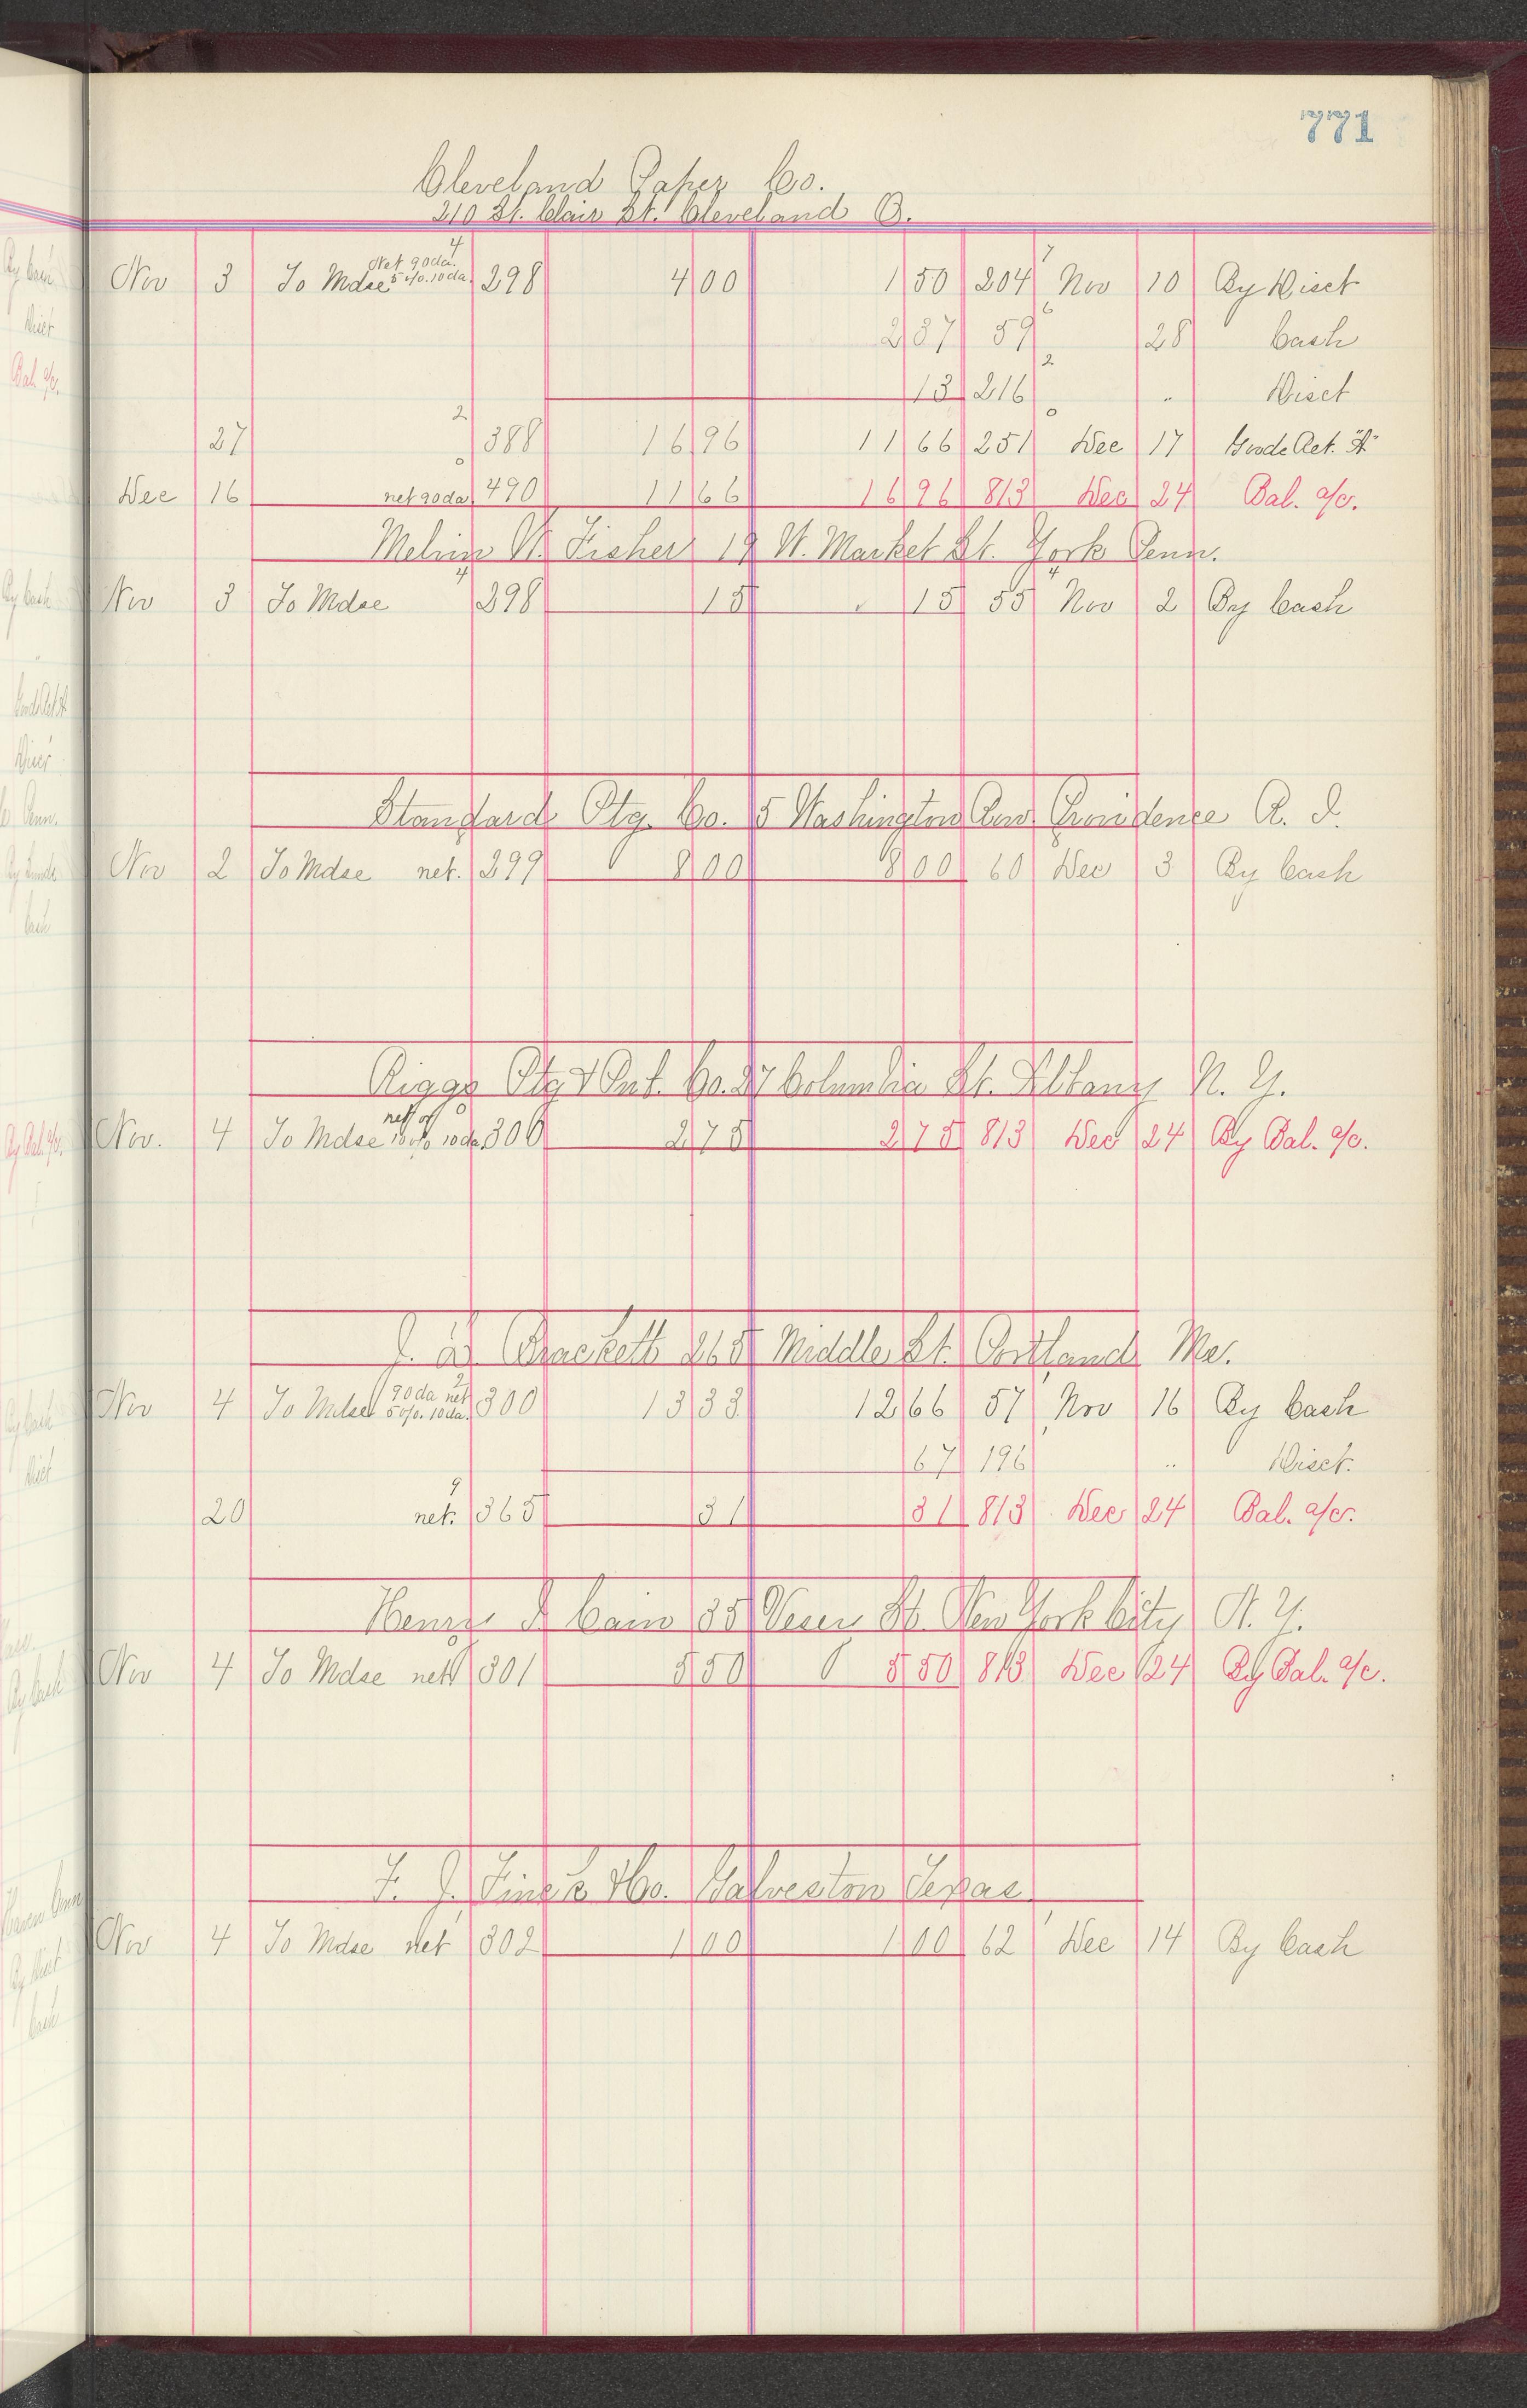 771
Cleveland Paper Co.
210 St. Clair St. Cleveland O.
Nov 3 To Mdse Net 90da. 5 o/o. 10 da. 4 298 4 00 1 50 204 7 Nov 10 By Disct
2 37 59 6 28 Cash
13 216 2 " Disct
27 2 388 16 96 11 66 251 0 Dec 17 Goods Ret. "A"
Dec 16 net 90da 0 490 11 66 16 96 813 Dec 24 Bal. a/c.
Melvin W. Fisher 19 W. Market St. York Penn.
Nov 3 To Mdse 4 298 15 15 55 4 Nov 2 By Cash
Standard Ptg. Co. 5 Washington Ave Providence R. I.
Nov 2 To Mdse net. 299 8 00 8 00 60 8 Dec 3 By Cash
Riggs Ptg & Pub. Co. 27 Columbia St. Albany N. Y.
Nov. 4 To Mdse net 10 o/o 10da. 0 300 2 75 2 75 813 Dec 24 By Bal. a/c.
J. W. Brackett 265 Middle St. Portland Me.
Nov 4 To Mdse 90da net 5 o/o. 10da. 2 300 13 33 12 66 57 Nov 16 By Cash
67 196 " Disct.
20 net. 9 365 31 31 813 Dec 24 Bal. a/c.
Henry I. Cain 35 Vesey St. New York City N. Y.
Nov 4 To Mdse net 301 5 50 5 50 813 Dec 24 By Bal. a/c.
F. J. Finck & Co. Galveston Texas
Nov 4 To Mdse net 302 1 00 1 00 62 Dec 14 By Cash